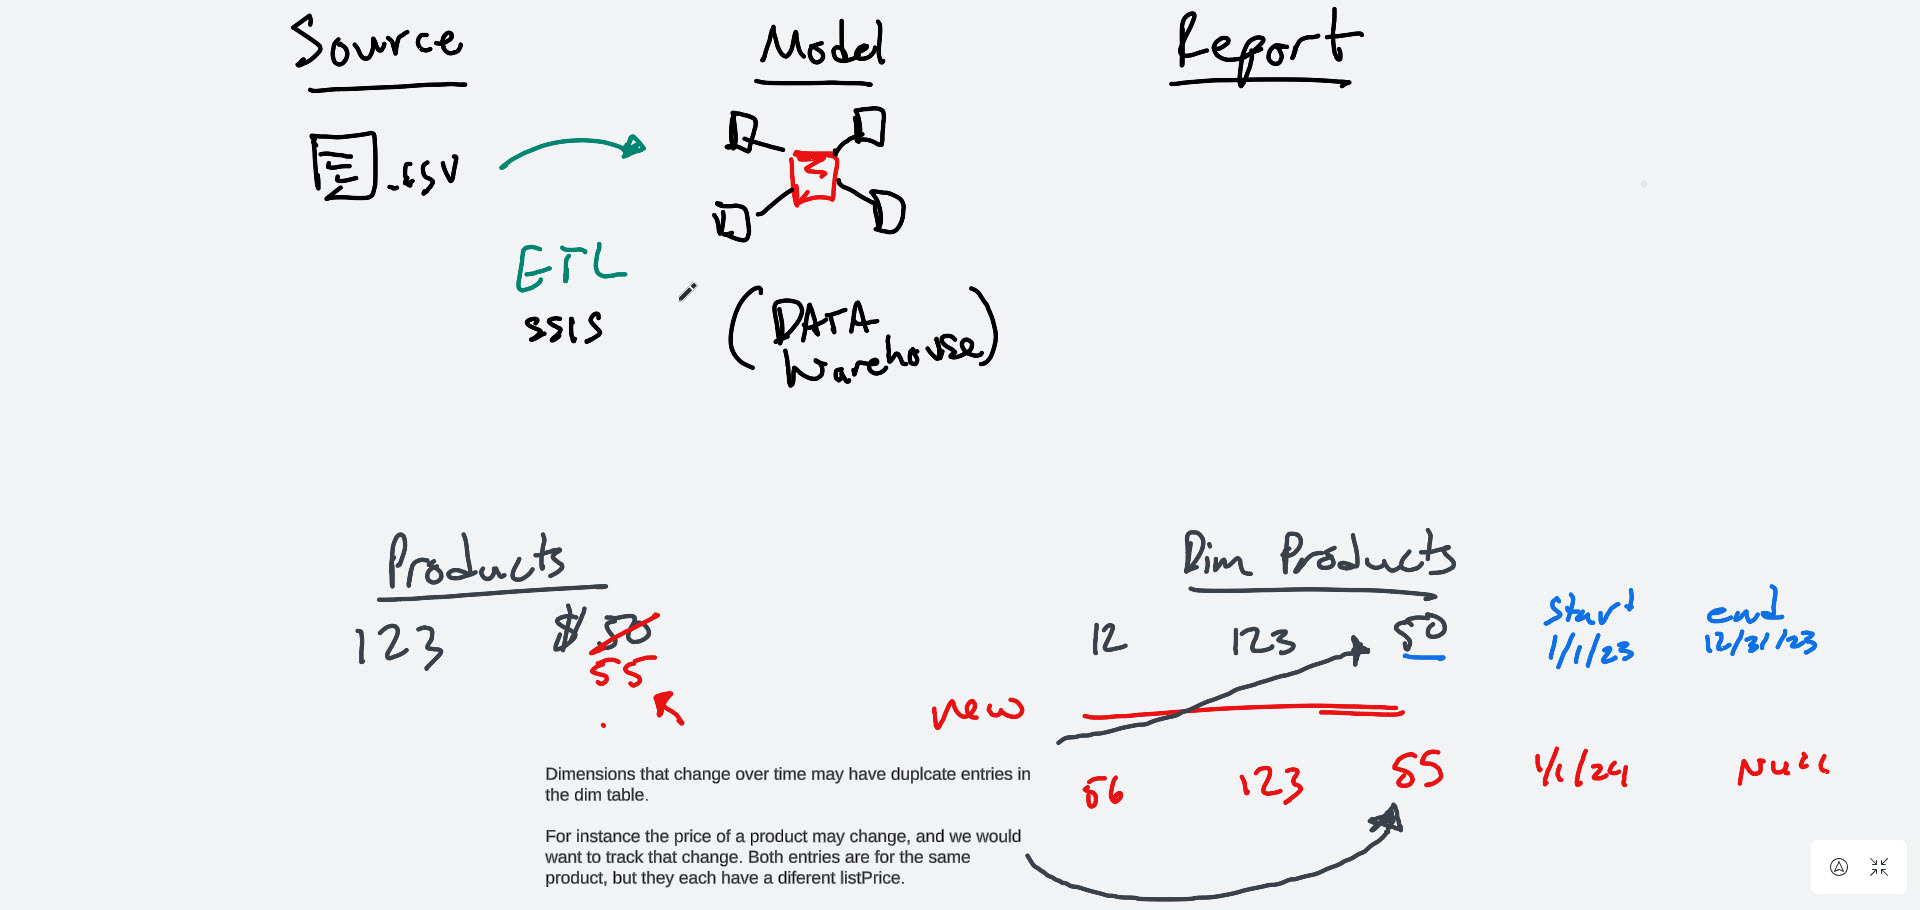 Source
Model
Report
.csv
ETL
SSIS
(DATA
Warehouse)
Products
123 $ 50
55
Dim Products
start end
12 123 50 1/1/23 12/31/23
new
56 123 55 1/1/24 NULL
Dimensions that change over time may have duplcate entries in
the dim table.
For instance the price of a product may change, and we would
want to track that change. Both entries are for the same
product, but they each have a diferent listPrice.